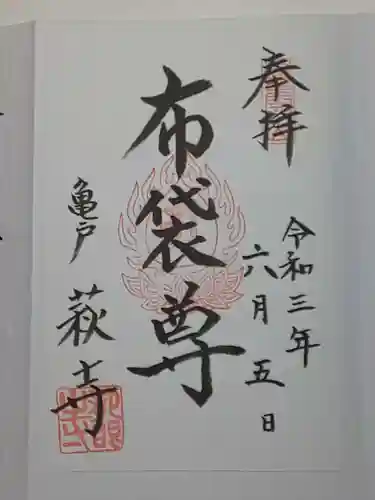 奉拝
令和三年
六月五日
布袋尊
亀戸
萩寺